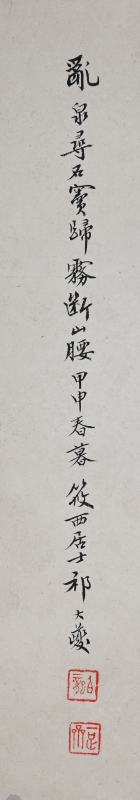 亂泉尋石竇歸霧斷山腰甲申春暮筱西居士祁大夔